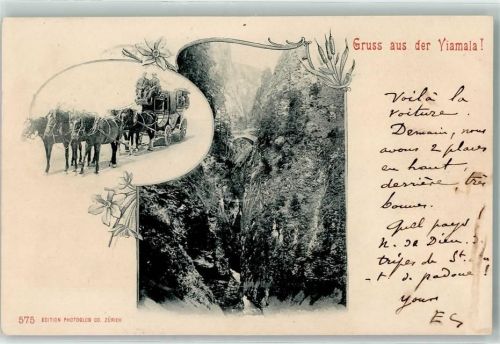 Gruss aus der Viamala!
Voilà la
voiture.
Demain, nous
avons 2 places
en haut
derrière très
bonnes.
Quel pays!
N. de Dieu. de
tripes de St.
t. de padoue!
Yours
EG
575 EDITION PHOTOGLOB CO. ZÜRICH